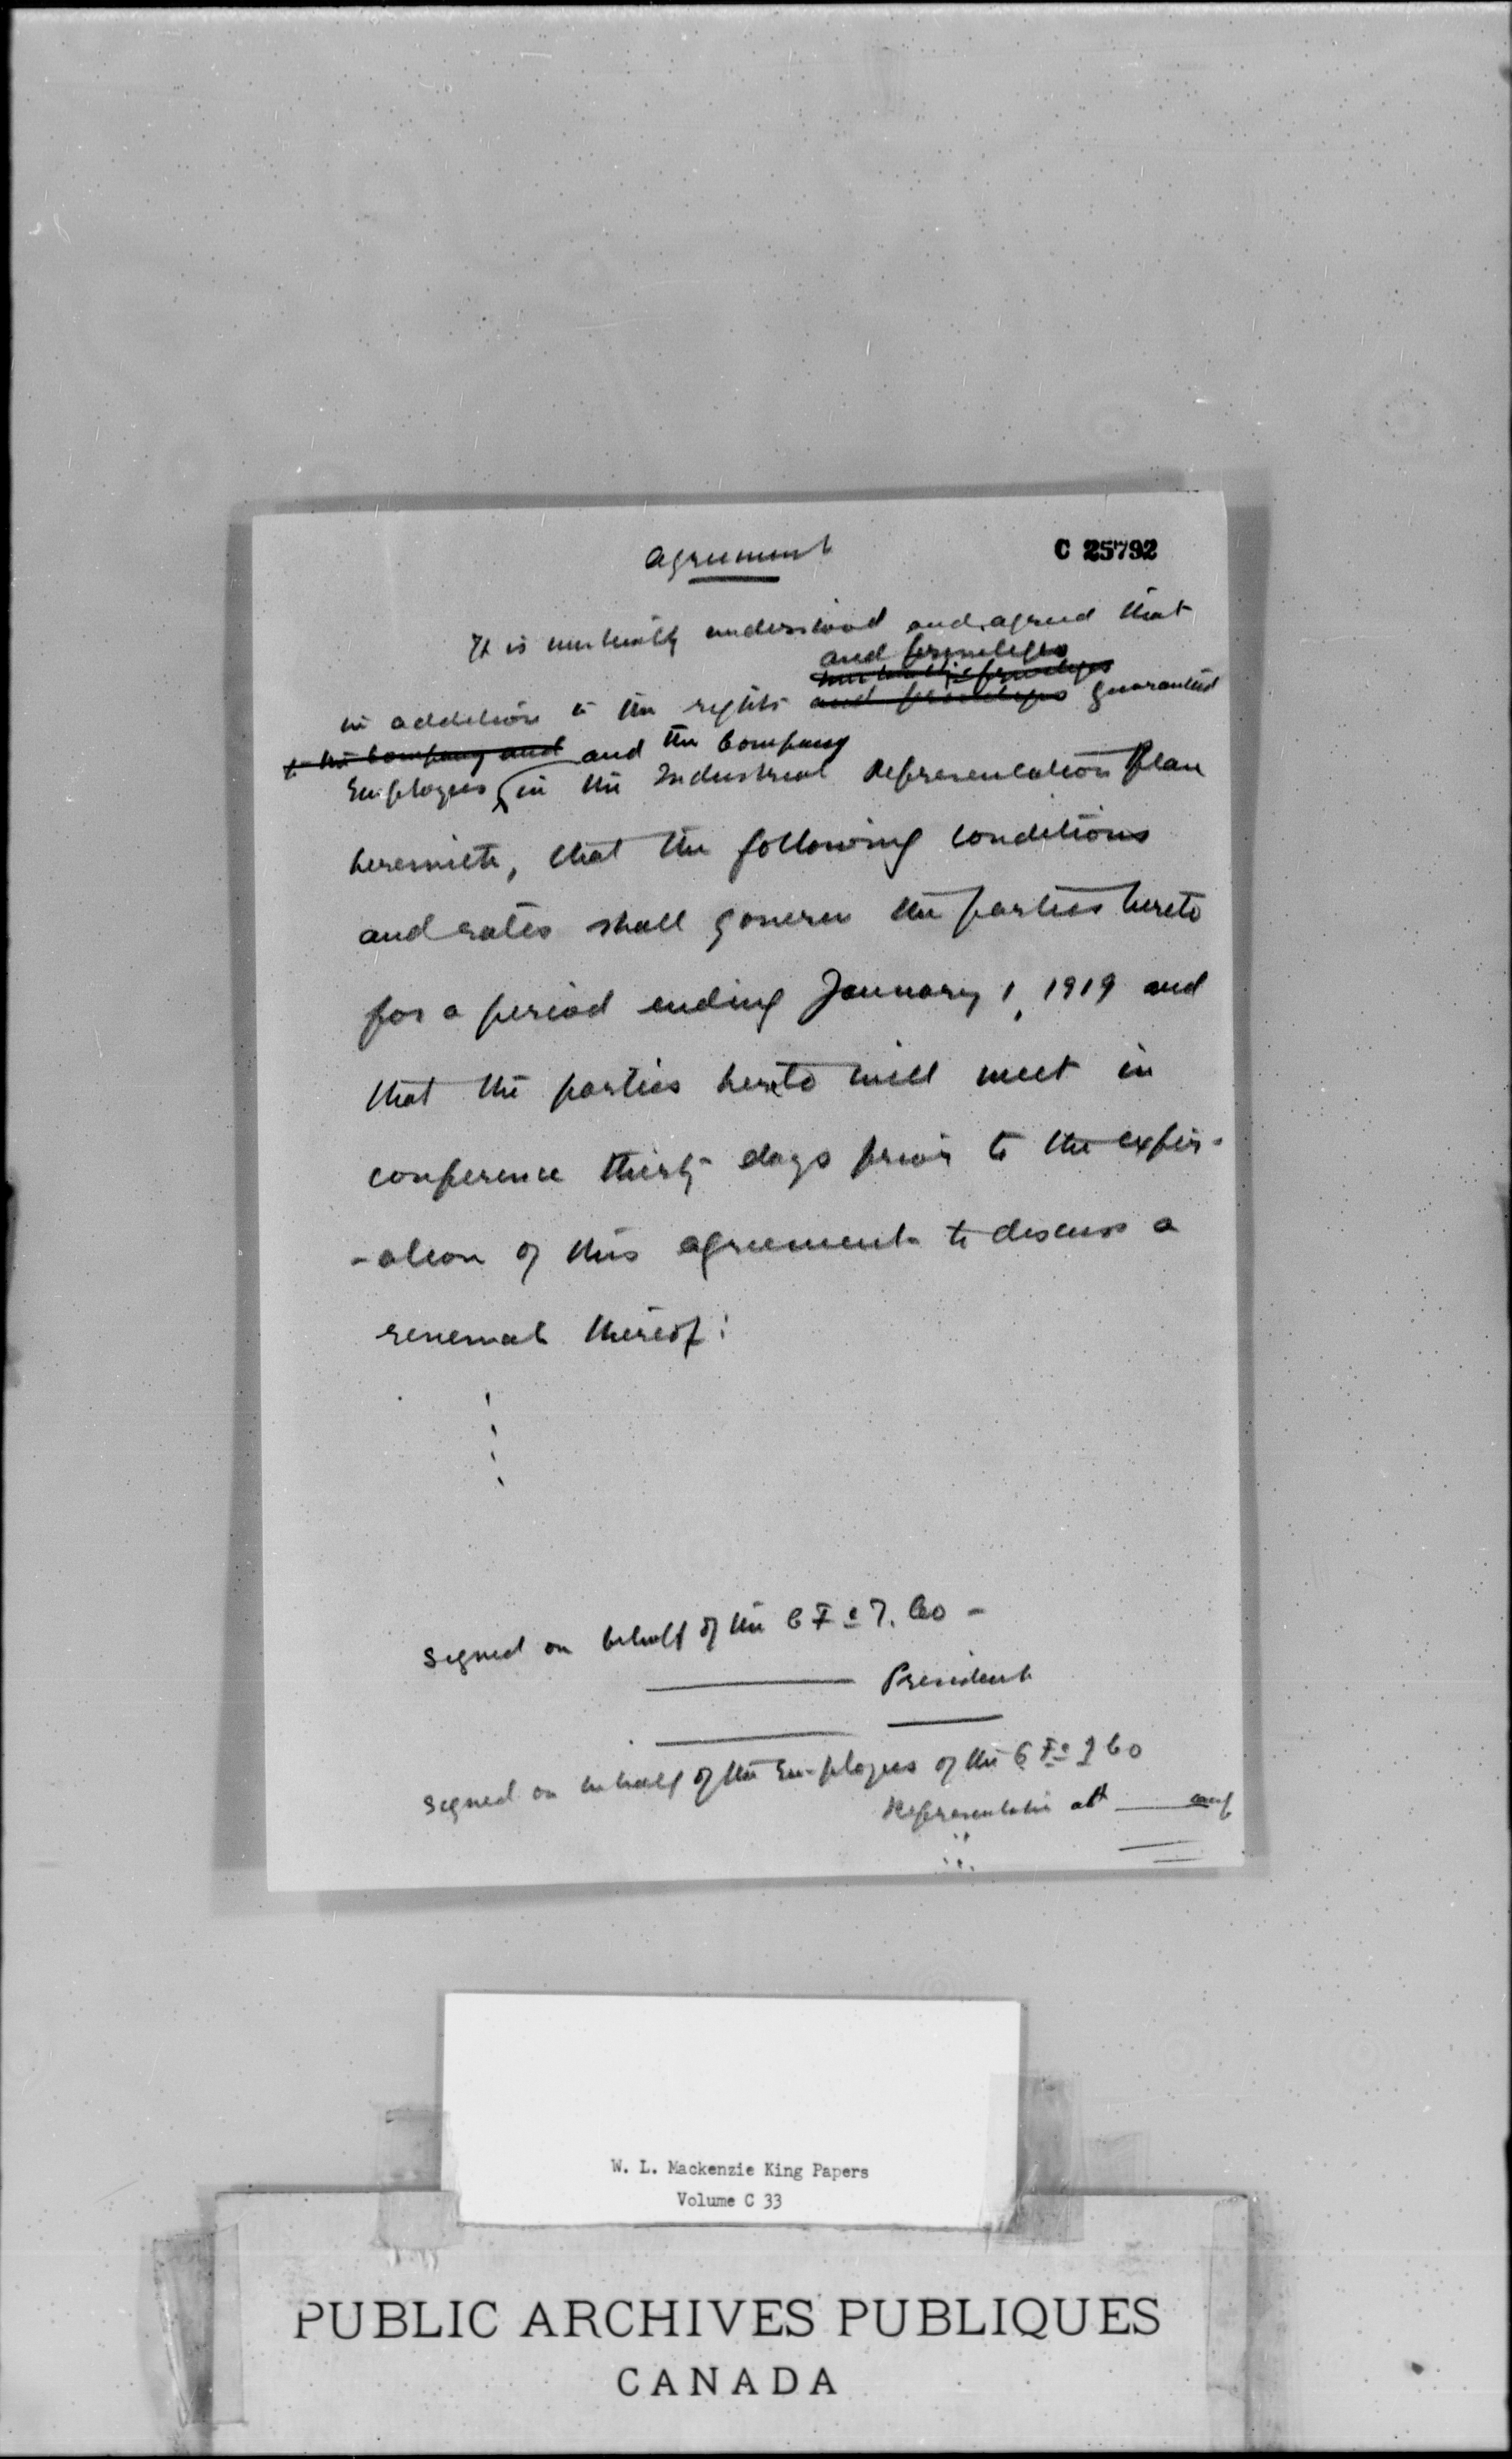 Agreement
C 25792
It is mutually understood and agreed that
and privileges
privileges
in addition to the rights and privileges guaranteed
to the Company and and the Company
Employees in the Industrial Representation Plan
herewith, that the following conditions
and rates shall govern the parties hereto
for a period ending January 1, 1919 and
that the parties hereto will meet in
conference thirty days prior to the expir-
-ation of this agreement to discuss a
renewal thereof:
Signed on behalf of the C F & I. Co -
President
Signed on behalf of the Employees of the C F & I Co
Representative at camp
W. L. Mackenzie King Papers
Volume C 33
PUBLIC ARCHIVES PUBLIQUES
CANADA